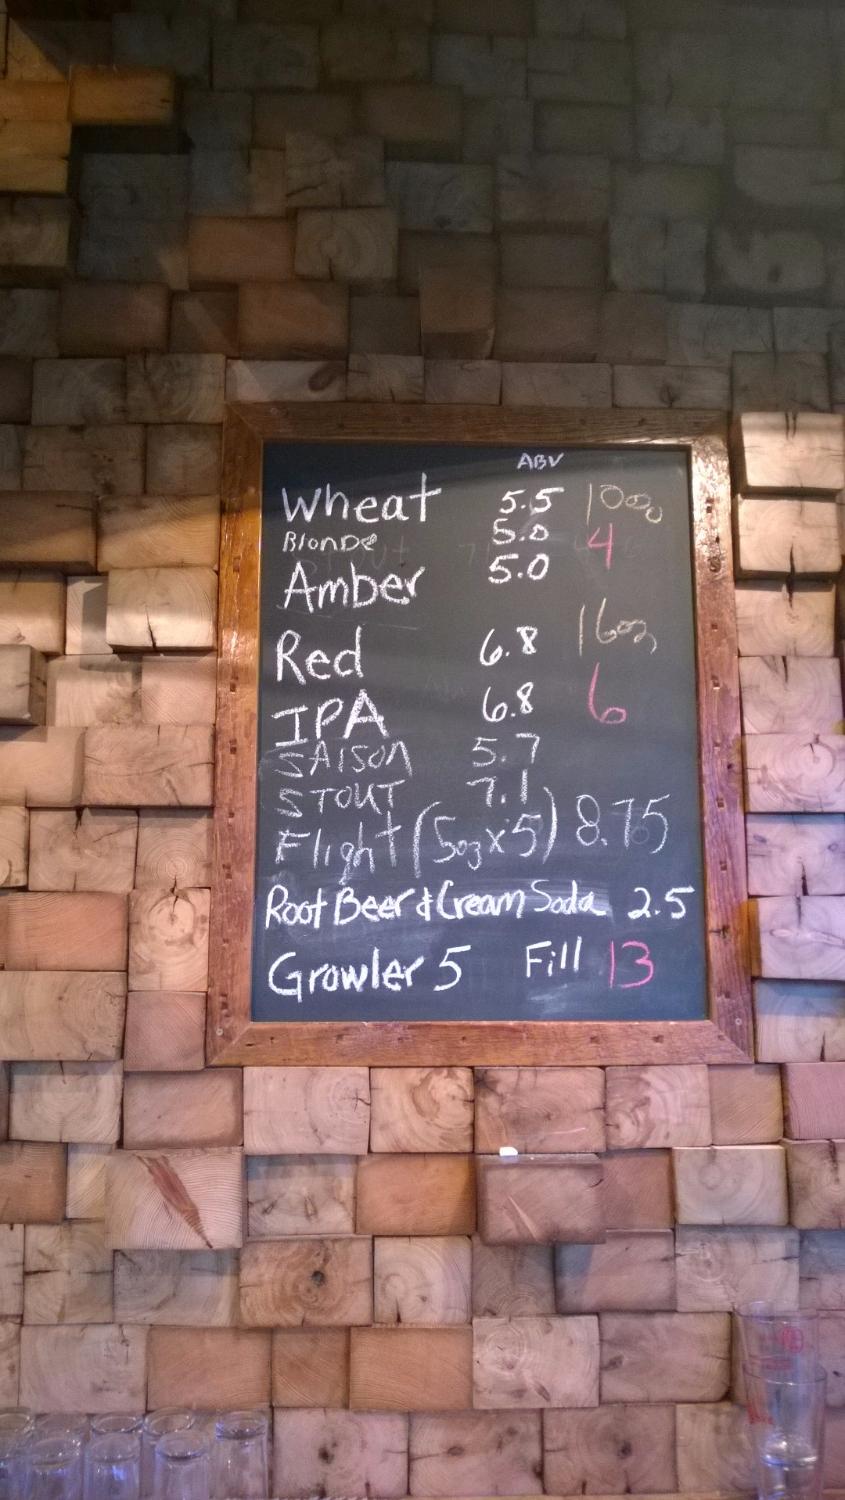 ABV
Wheat 5.5 10oz
Blonde 5.0 4
Amber 5.0
Red 6.8 16oz
IPA 6.8 6
SAISON 5.7
STOUT 7.1
Flight (5oz x 5) 8.75
Root Beer & Cream Soda 2.5
Growler 5 Fill 13